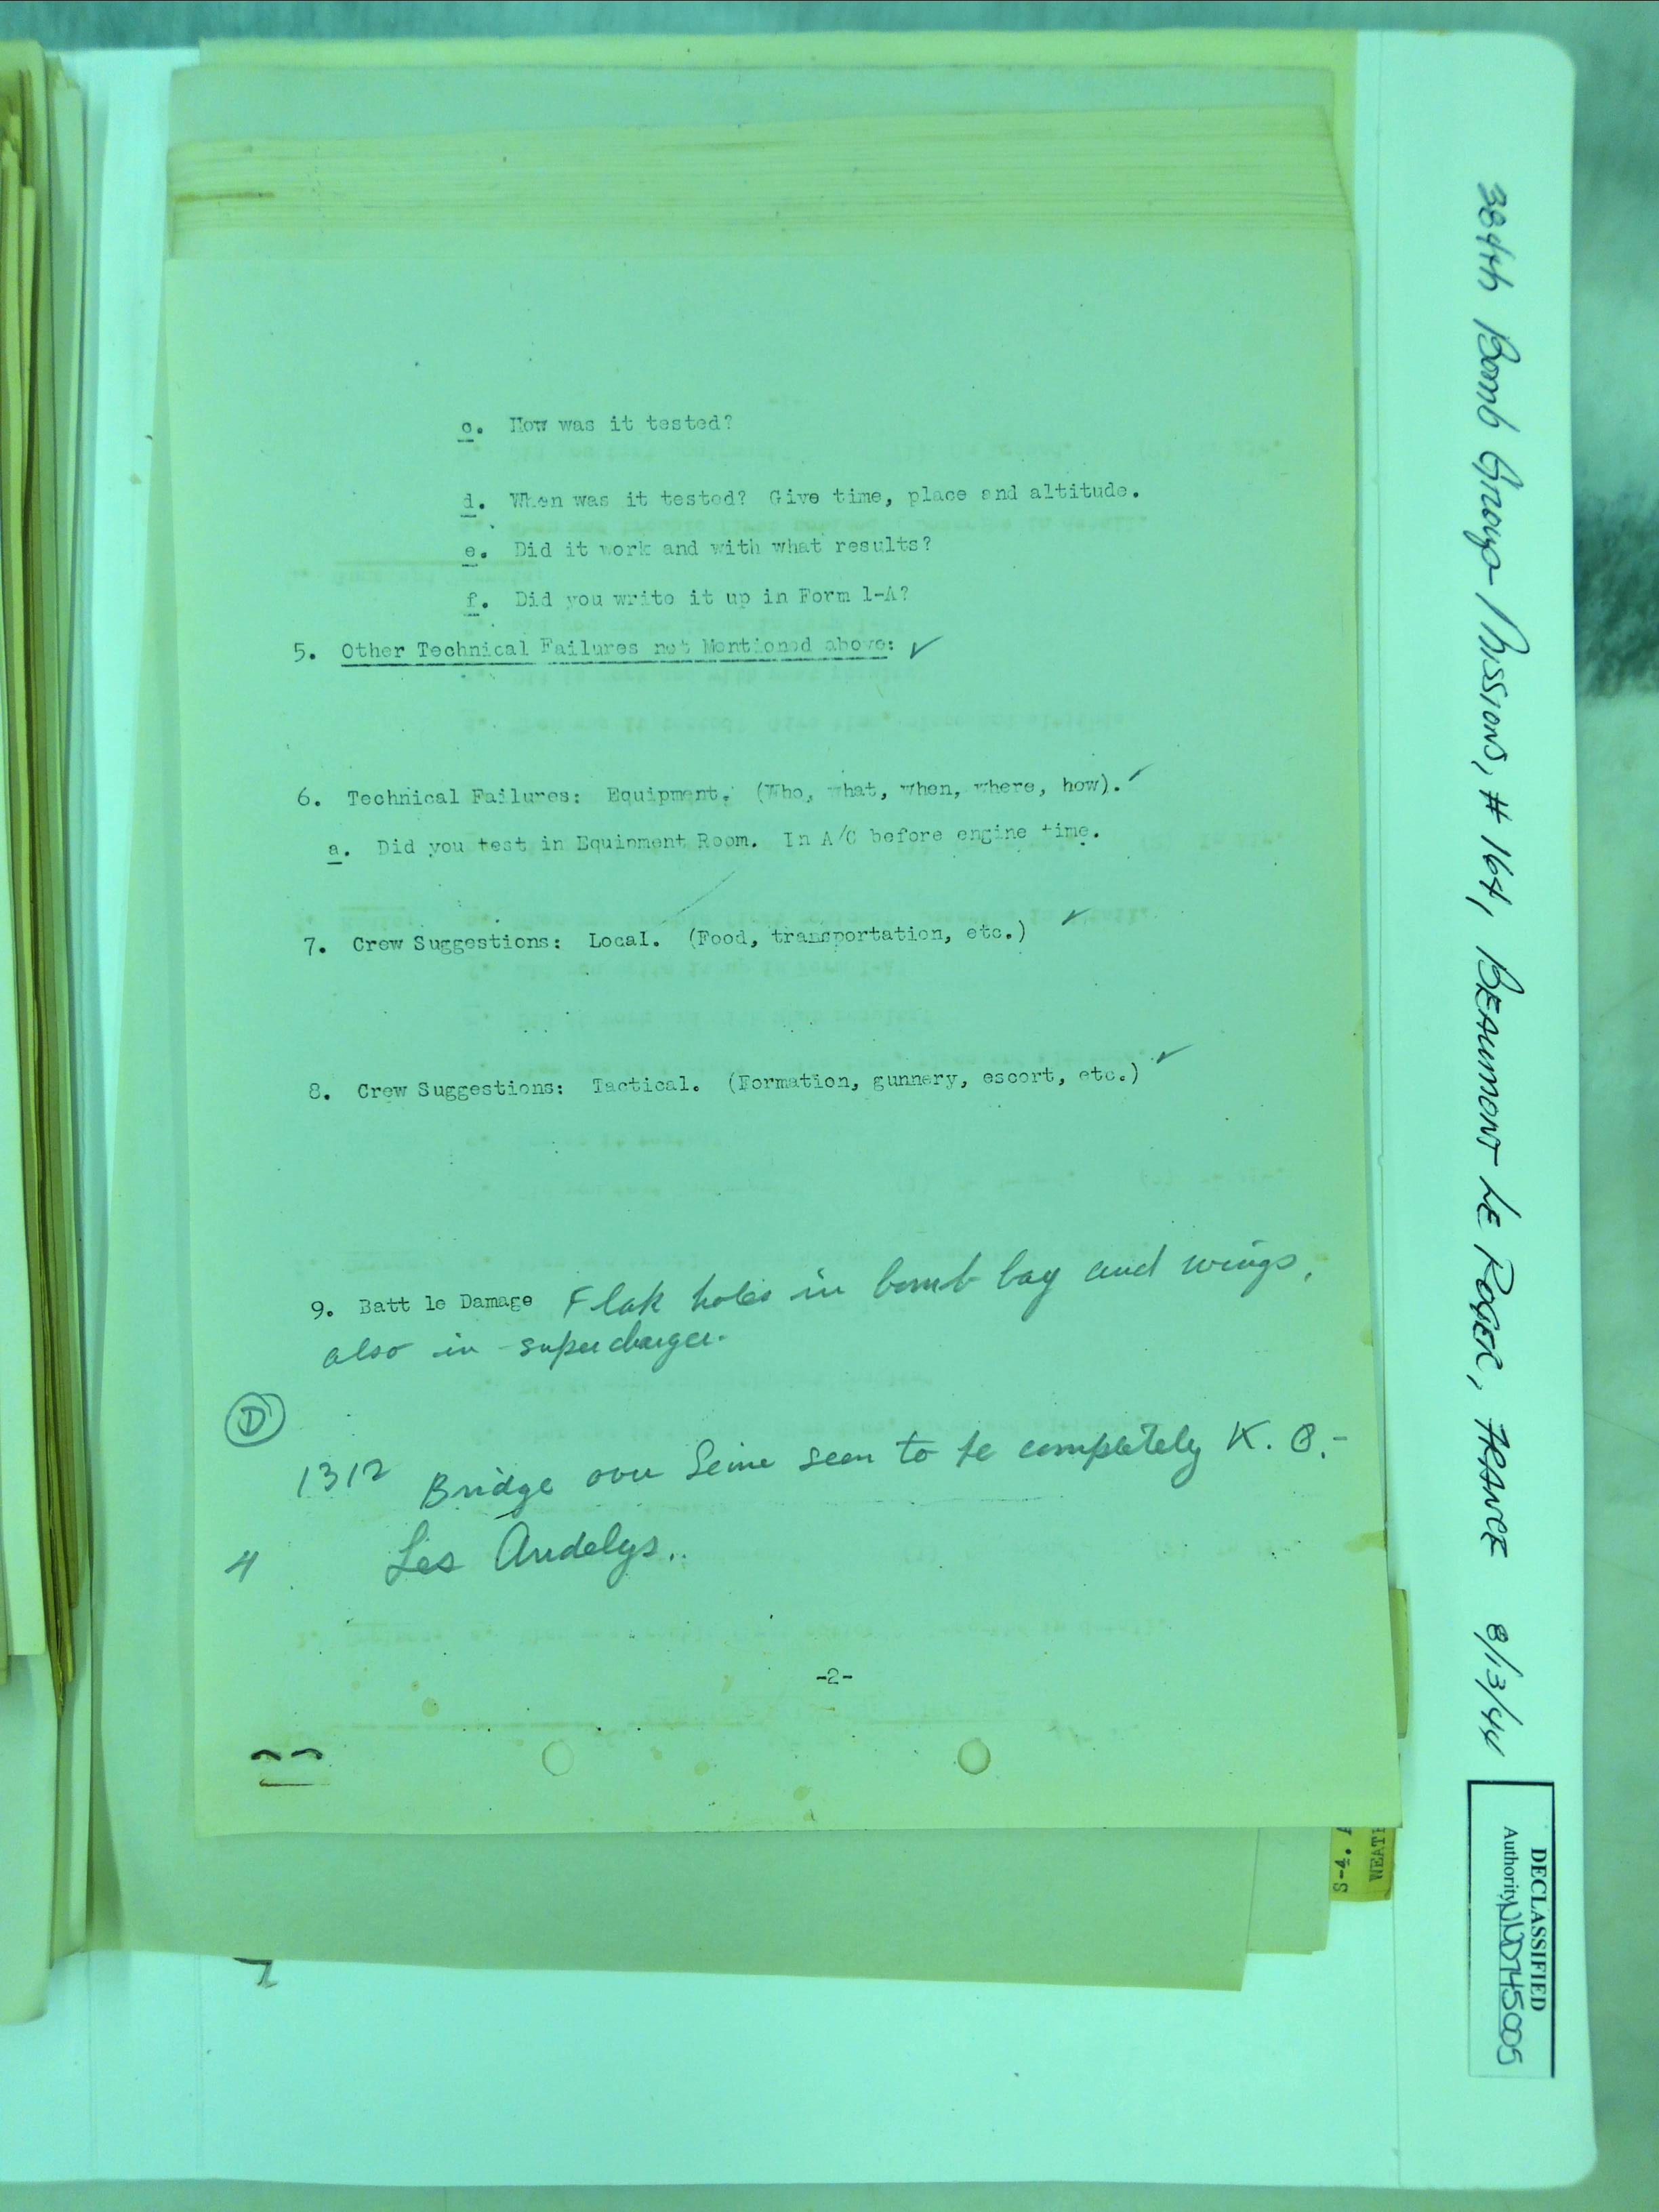 c. How was it tested?
d. When was it tested? Give time, place and altitude.
e. Did it work and with what results?
f. Did you write it up in Form 1-A?
5. Other Technical Failures not Mentioned above: ✓
6. Technical Failures: Equipment. (Who, what, when, where, how). ✓
a. Did you test in Equipment Room. In A/C before engine time.
7. Crew Suggestions: Local. (Food, transportation, etc.) ✓
8. Crew Suggestions: Tactical. (Formation, gunnery, escort, etc.) ✓
9. Batt le Damage Flak holes in bomb bay and wings,
also in supercharger.
D
1312 Bridge over Seine seen to be completely K. O. -
4 Les Andelys.
-2-
384th Bomb Group Missions, # 164, BEAUMONT LE ROGER, FRANCE 8/13/44
DECLASSIFIED
Authority NND745005
S-4.